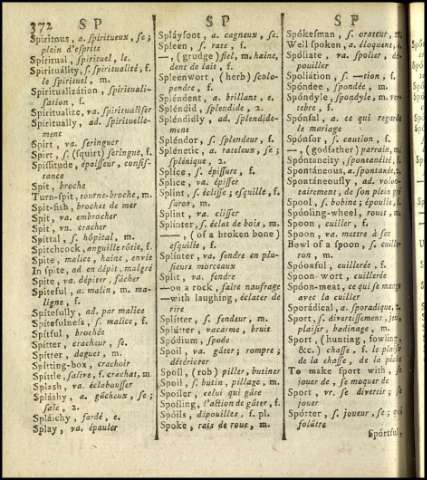 372 S P
S P
S P
Spíritous, a. spiritueux, se;
plein d'esprit
Spíritual, spirituel, le.
Spirituálity, s. spiritualité, f.
le spirituel
Spiritualizátion, spirituali-
sation, f.
Spíritualize, va. spiritualiser
Spíritually, ad. spirituelle-
ment
Spirt, va. seringuer
Spirt, s. (squirt) seringue, f.
Spíssitude, épaisseur, consis-
tance
Spit, broche
Turn-spit, tourne-broche, m.
Spit-fish, brochet de mer
Spit, va. embrocher
Spit, vn. cracher
Spíttal, s. hôpital, m.
Spítchcock, anguille rôtie, f.
Spite, malice, haine, envie
In spite, ad. en dépit, malgré
Spite, va. dépiter, fâcher
Spíteful, a. malin, m. ma-
ligne, f.
Spítefully, ad. par malice
Spítefulness, s. malice, f.
Spítful, brochée
Spítter, cracheur, se.
Spítter, daguet, m.
Spítting-box, crachoir
Spíttle, salive, f. crachat, m.
Splash, va. éclabousser
Spláshy, a. gâcheux, se;
sale, 2.
Spláichy, fardé, e.
Splay, va. épauler
Spláyfoot, a. cagneux, se.
Spleen, s. rate, f.
—, (grudge) fiel, m. haine,
dent de lait, f.
Spleenwort, (herb) scolo-
pendre, f.
Spléndent, a. brillant, e.
Spléndid, splendide, 2.
Spléndidly, ad. splendide-
ment
Spléndor, s. splendeur, f.
Splénetic, a. rateleux, se;
splénique, 2.
Splice, s. épissure, f.
Splice, va. épisser
Splint, s. éclisse; esquille, f.
suros, m.
Splint, va. clisser
Splínter, s. éclat de bois, m.
—— (of a broken bone)
esquille, f.
Splínter, va. fendre en plu-
sieurs morceaux
Split, va. fendre
—on a rock, faire naufrage
—with laughing, éclater de
rire
Splítter, s. fendeur, m.
Splútter, vacarme, bruit
Spódium, spode
Spoil, va. gâter; rompre;
détériorer
Spoil, (rob) piller, butiner
Spoil, s. butin, pillage, m.
Spoíler, celui qui gâte
Spoíling, l'action de gâter, f.
Spoils, dépouilles, f. pl.
Spoke, rais de roue, m.
Spókesman, s. orateur, m.
Well spoken, a. éloquent, e.
Spóliate, va. spolier, dé-
pouiller
Spoliátion, s. —tion, f.
Spóndee, spondée, m.
Spóndyle, spondyle, m. ver-
tebre, f.
Spónsal, a. ce qui regarde
le mariage
Spónsor, s. caution, f.
—, (godfather) parrain, m.
Spontanéity, spontanéité, f.
Spontáneous, a. spontanée, 2.
Spontáneously, ad. volon-
tairement; de son plein gré
Spool, s. bobine; époulle, f.
Spóoling-wheel, rouet, m.
Spoon, cuiller, f.
Spoon, va. mettre à sec
Bowl of a spoon, s. cuille-
ron, m.
Spoónful, cuillerée, f.
Spoon-wort, cuillerée
Spóon-meat, ce qui se mange
avec la cuiller
Sporádical, a. sporadique, 2.
Sport, s. divertissement, jeu,
plaisir, badinage, m.
Sport, (hunting, fowling,
&c.) chasse, f. le plaisir
de la chasse, de la pêche
To make sport with, se
jouer de, se moquer de
Sport, vr. se divertir; se
jouer
Spórter, s. joueur, se; qui
folâtre
Spórtful,